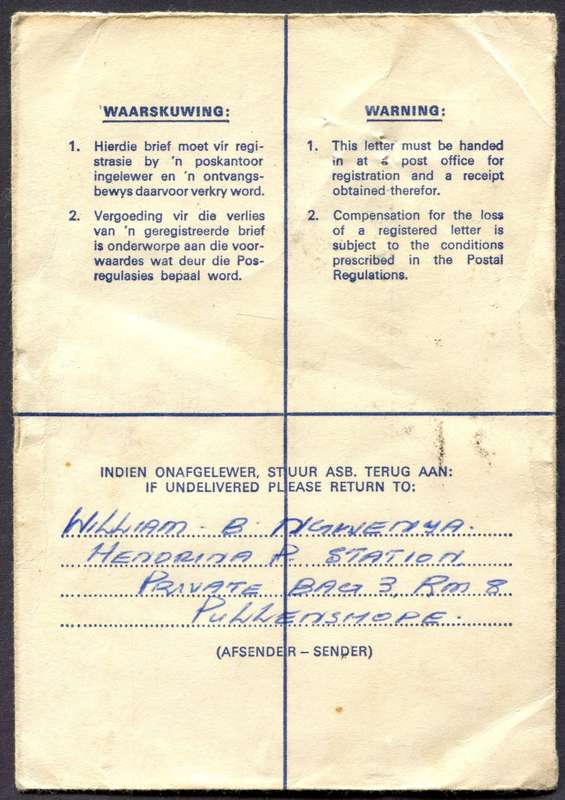 WAARSKUWING:
1. Hierdie brief moet vir regi-
strasie by 'n poskantoor
ingelewer en 'n ontvangs-
bewys daarvoor verkry word.
2. Vergoeding vir die verlies
van 'n geregistreerde brief
is onderworpe aan die voor-
waardes wat deur die Pos-
regulasies bepaal word.
WARNING:
1. This letter must be handed
in at a post office for
registration and a receipt
obtained therefor.
2. Compensation for the loss
of a registered letter is
subject to the conditions
prescribed in the Postal
Regulations.
INDIEN ONAFGELEWER, STUUR ASB. TERUG AAN:
IF UNDELIVERED PLEASE RETURN TO:
WILLIAM - B. NGWENYA.
HENDRINA P. STATION
PRIVATE BAG 3, RM 8
PULLENSHOPE.
(AFSENDER – SENDER)